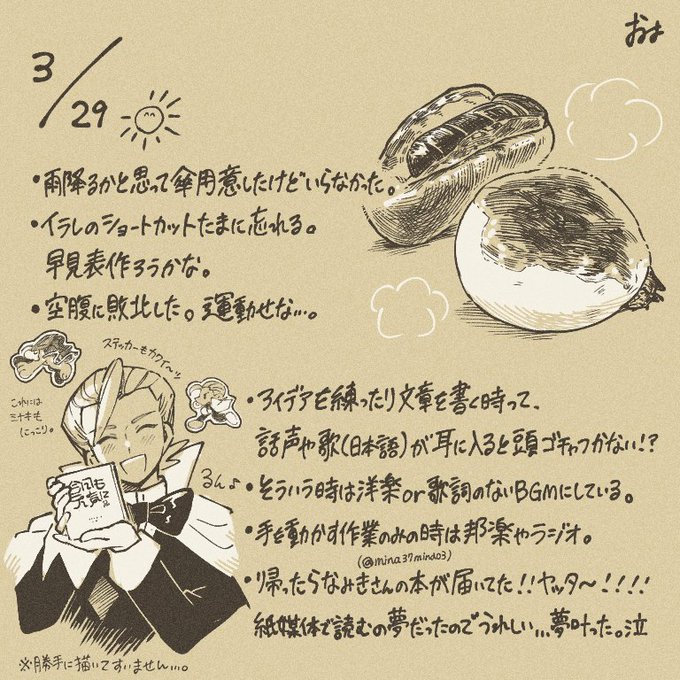 おは
3/29
・雨降るかと思って傘用意したけどいらなかった。
・イラレのショートカットたまに忘れる。
早見表作ろうかな。
・空腹に敗北した。運動せな…。
ステッカーもカワイ〜ッ
これには
ミナキも
にっこり。
・アイデアを練ったり文章を書く時って、
話声や歌(日本語)が耳に入ると頭ゴチャつかない!?
るん♪
・そういう時は洋楽or歌詞のないBGMにしている。
・手を動かす作業のみの時は邦楽やラジオ。
(@mina37mind03)
・帰ったらなみきさんの本が届いてた!!ヤッタ〜!!!!
紙媒体で読むの夢だったのでうれしい…夢叶った。泣
※勝手に描いてすいません…。